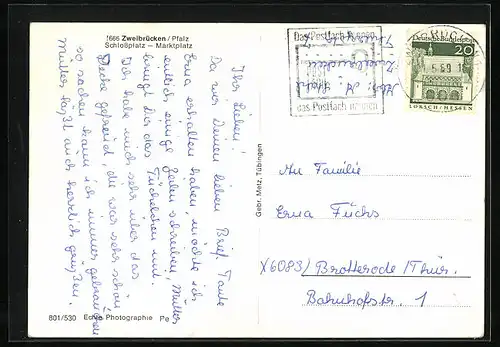 1666 Zweibrücken / Pfalz
Schloßplatz – Marktplatz
Ihr Lieben!
Da wir Deinen lieben Brief, Tante
Erna erhalten haben, möchte ich
endlich einige Zeilen schreiben. Mutter
bringt dir das Tüchelchen mit.
Ich habe mich sehr über das
Decke gefreut, die war sehr schön
so sachen kann ich immer gebrauchen
Mutter läßt auch herzlich grüßen.
801/530 Echte Photographie Pe
Gebr. Metz, Tübingen
das Postfach nutzen
Deutsche Bundespost
20
LORSCH/HESSEN
An Familie
Erna Füchs
X6083/ Brotterode /Thür.
Bahnhofstr. 1